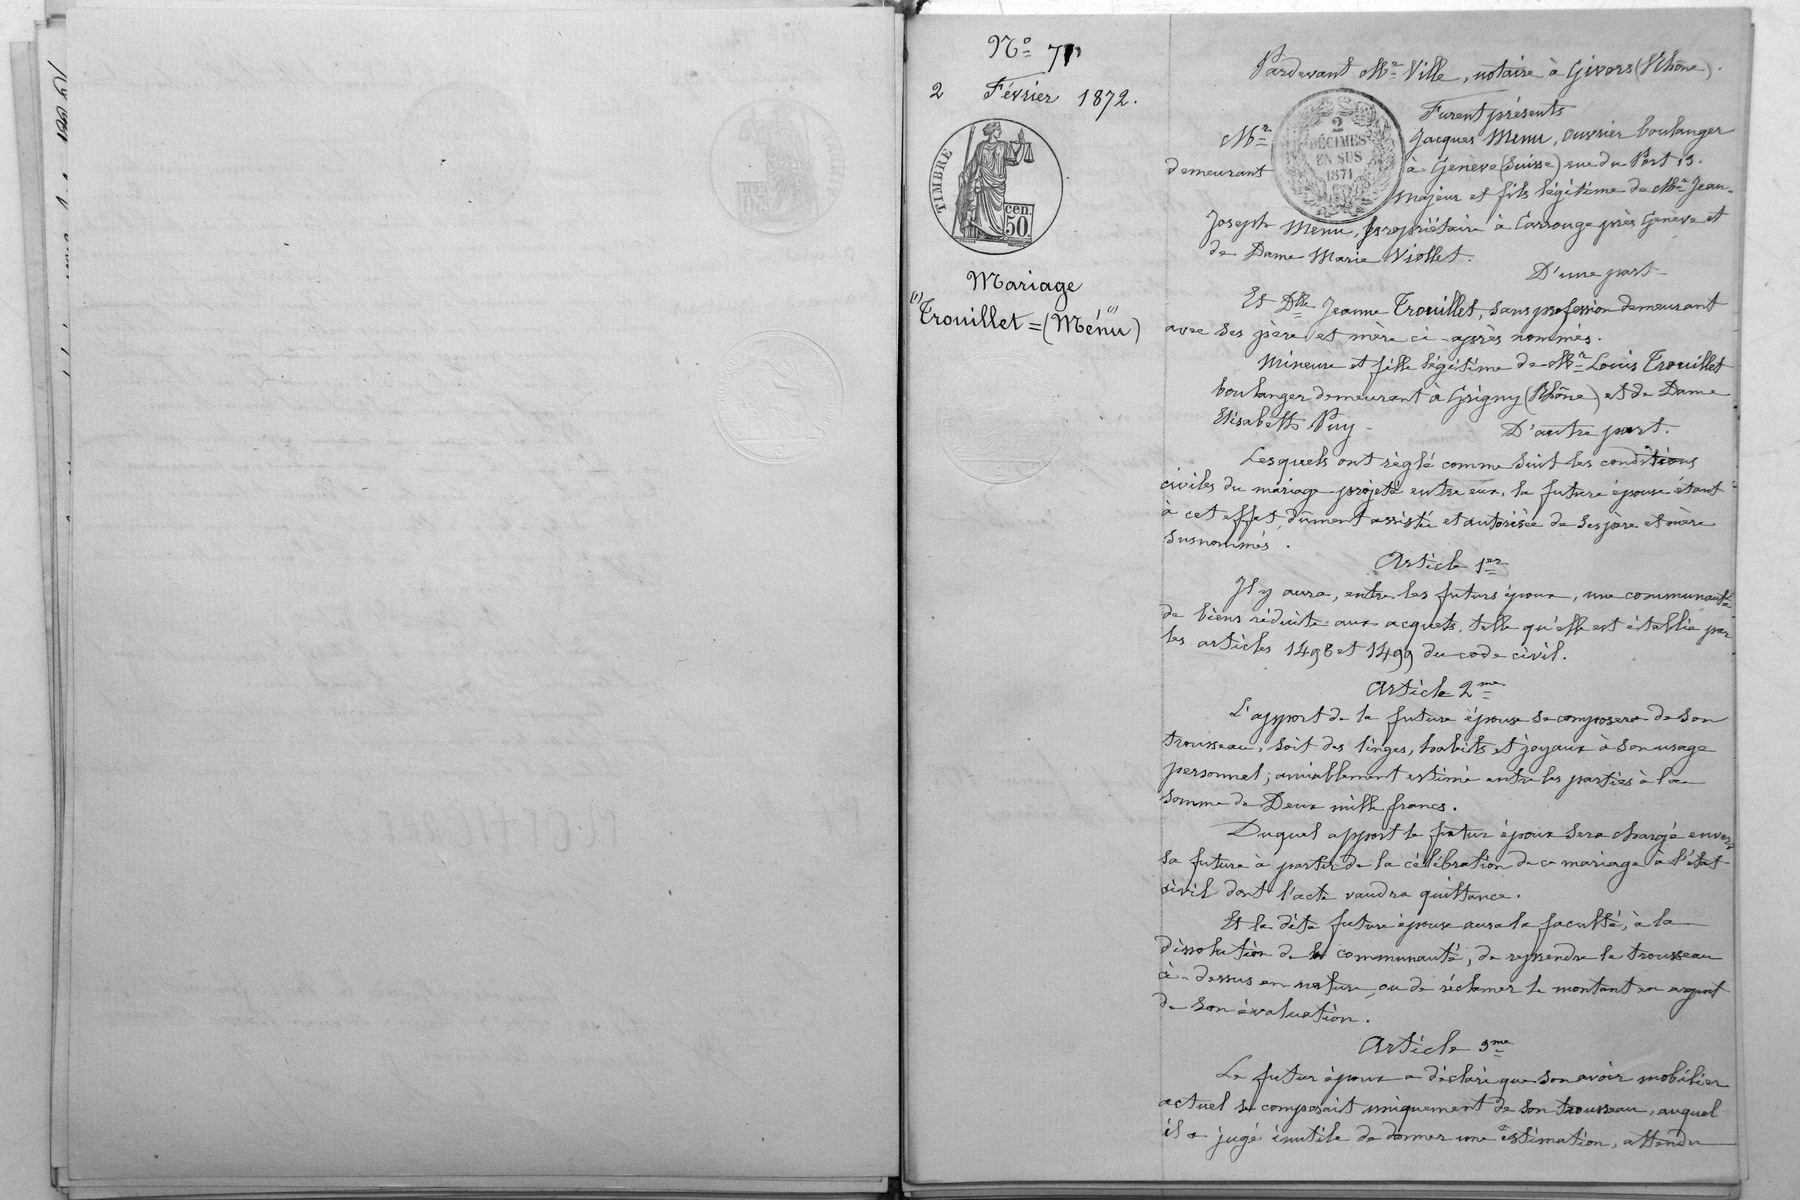 N° 71
2 Février 1872.
TIMBRE
cen. 50
Mariage
(1) Trouillet = (Ménu) (1)
Pardevant Me Ville, notaire à Givors (Rhône).
Furent présents
2 DÉCIMES EN SUS 1871
Mr Jacques Menu, ouvrier boulanger
demeurant à Genève (Suisse) rue du Port 13.
Majeur et fils légitime de Mr Jean-
Joseph Menu, propriétaire à Carrouge près Genève et
de Dame Marie Viollet.
D'une part-
Et Dlle Jeanne Trouillet, sans profession demeurant
avec ses père et mère ci-après nommés.
Mineure et fille légitime de Mr Louis Trouillet
boulanger demeurant à Grigny (Rhône) et de Dame
Elisabeth Puy -
D'autre part.
Lesquels ont règlé comme suit les conditions
civiles du mariage projeté entre eux, la future épouse étant
à cet effet, dûment assistée et autorisée de ses père et mère
susnommés.
Article 1er
Il y aura, entre les futurs époux, une communauté
de biens réduite aux acquets, telle qu'elle est établie par
les articles 1498 et 1499 du code civil.
Article 2me
L'apport de la future épouse se composera de son
trousseau, soit des linges, habits et joyaux à son usage
personnel; amiablement estimé entre les parties à la
somme de Deux mille francs.
Duquel apport le futur époux sera chargé envers
sa future à partir de la célébration de ce mariage à l'état
civil dont l'acte vaudra quittance.
Et la dite future épouse aura la faculté, à la
dissolution de la communauté, de reprendre le trousseau
ci-dessus en nature, ou de réclamer le montant en argent
de son évaluation.
Article 3me
Le futur époux a déclaré que son avoir mobilier
actuel se composait uniquement de son trousseau, auquel
il a jugé inutile de donner une estimation, attendu